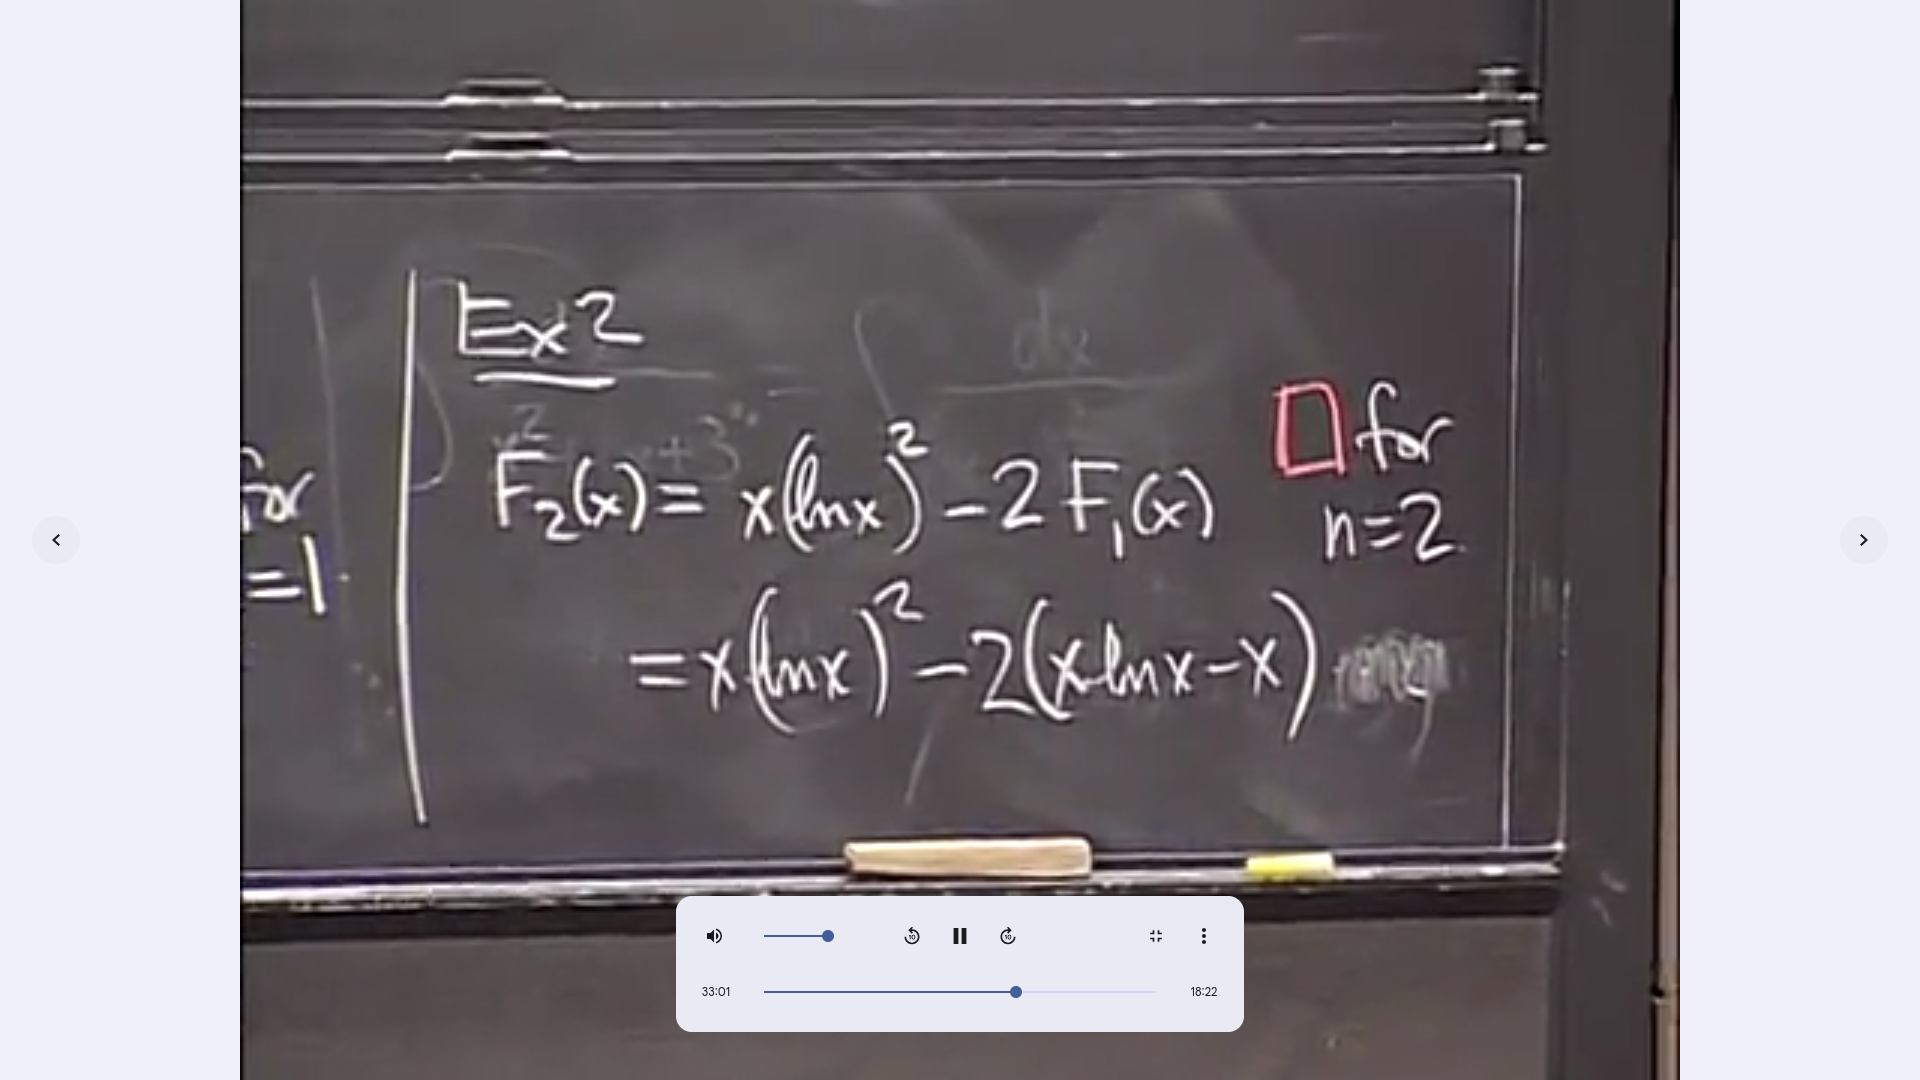 Ex 2
for
=1
F₂(x) = x(ln x)² - 2 F₁(x)
□ for
n=2
= x(ln x)² - 2(x ln x - x)
dx
33:01
18:22